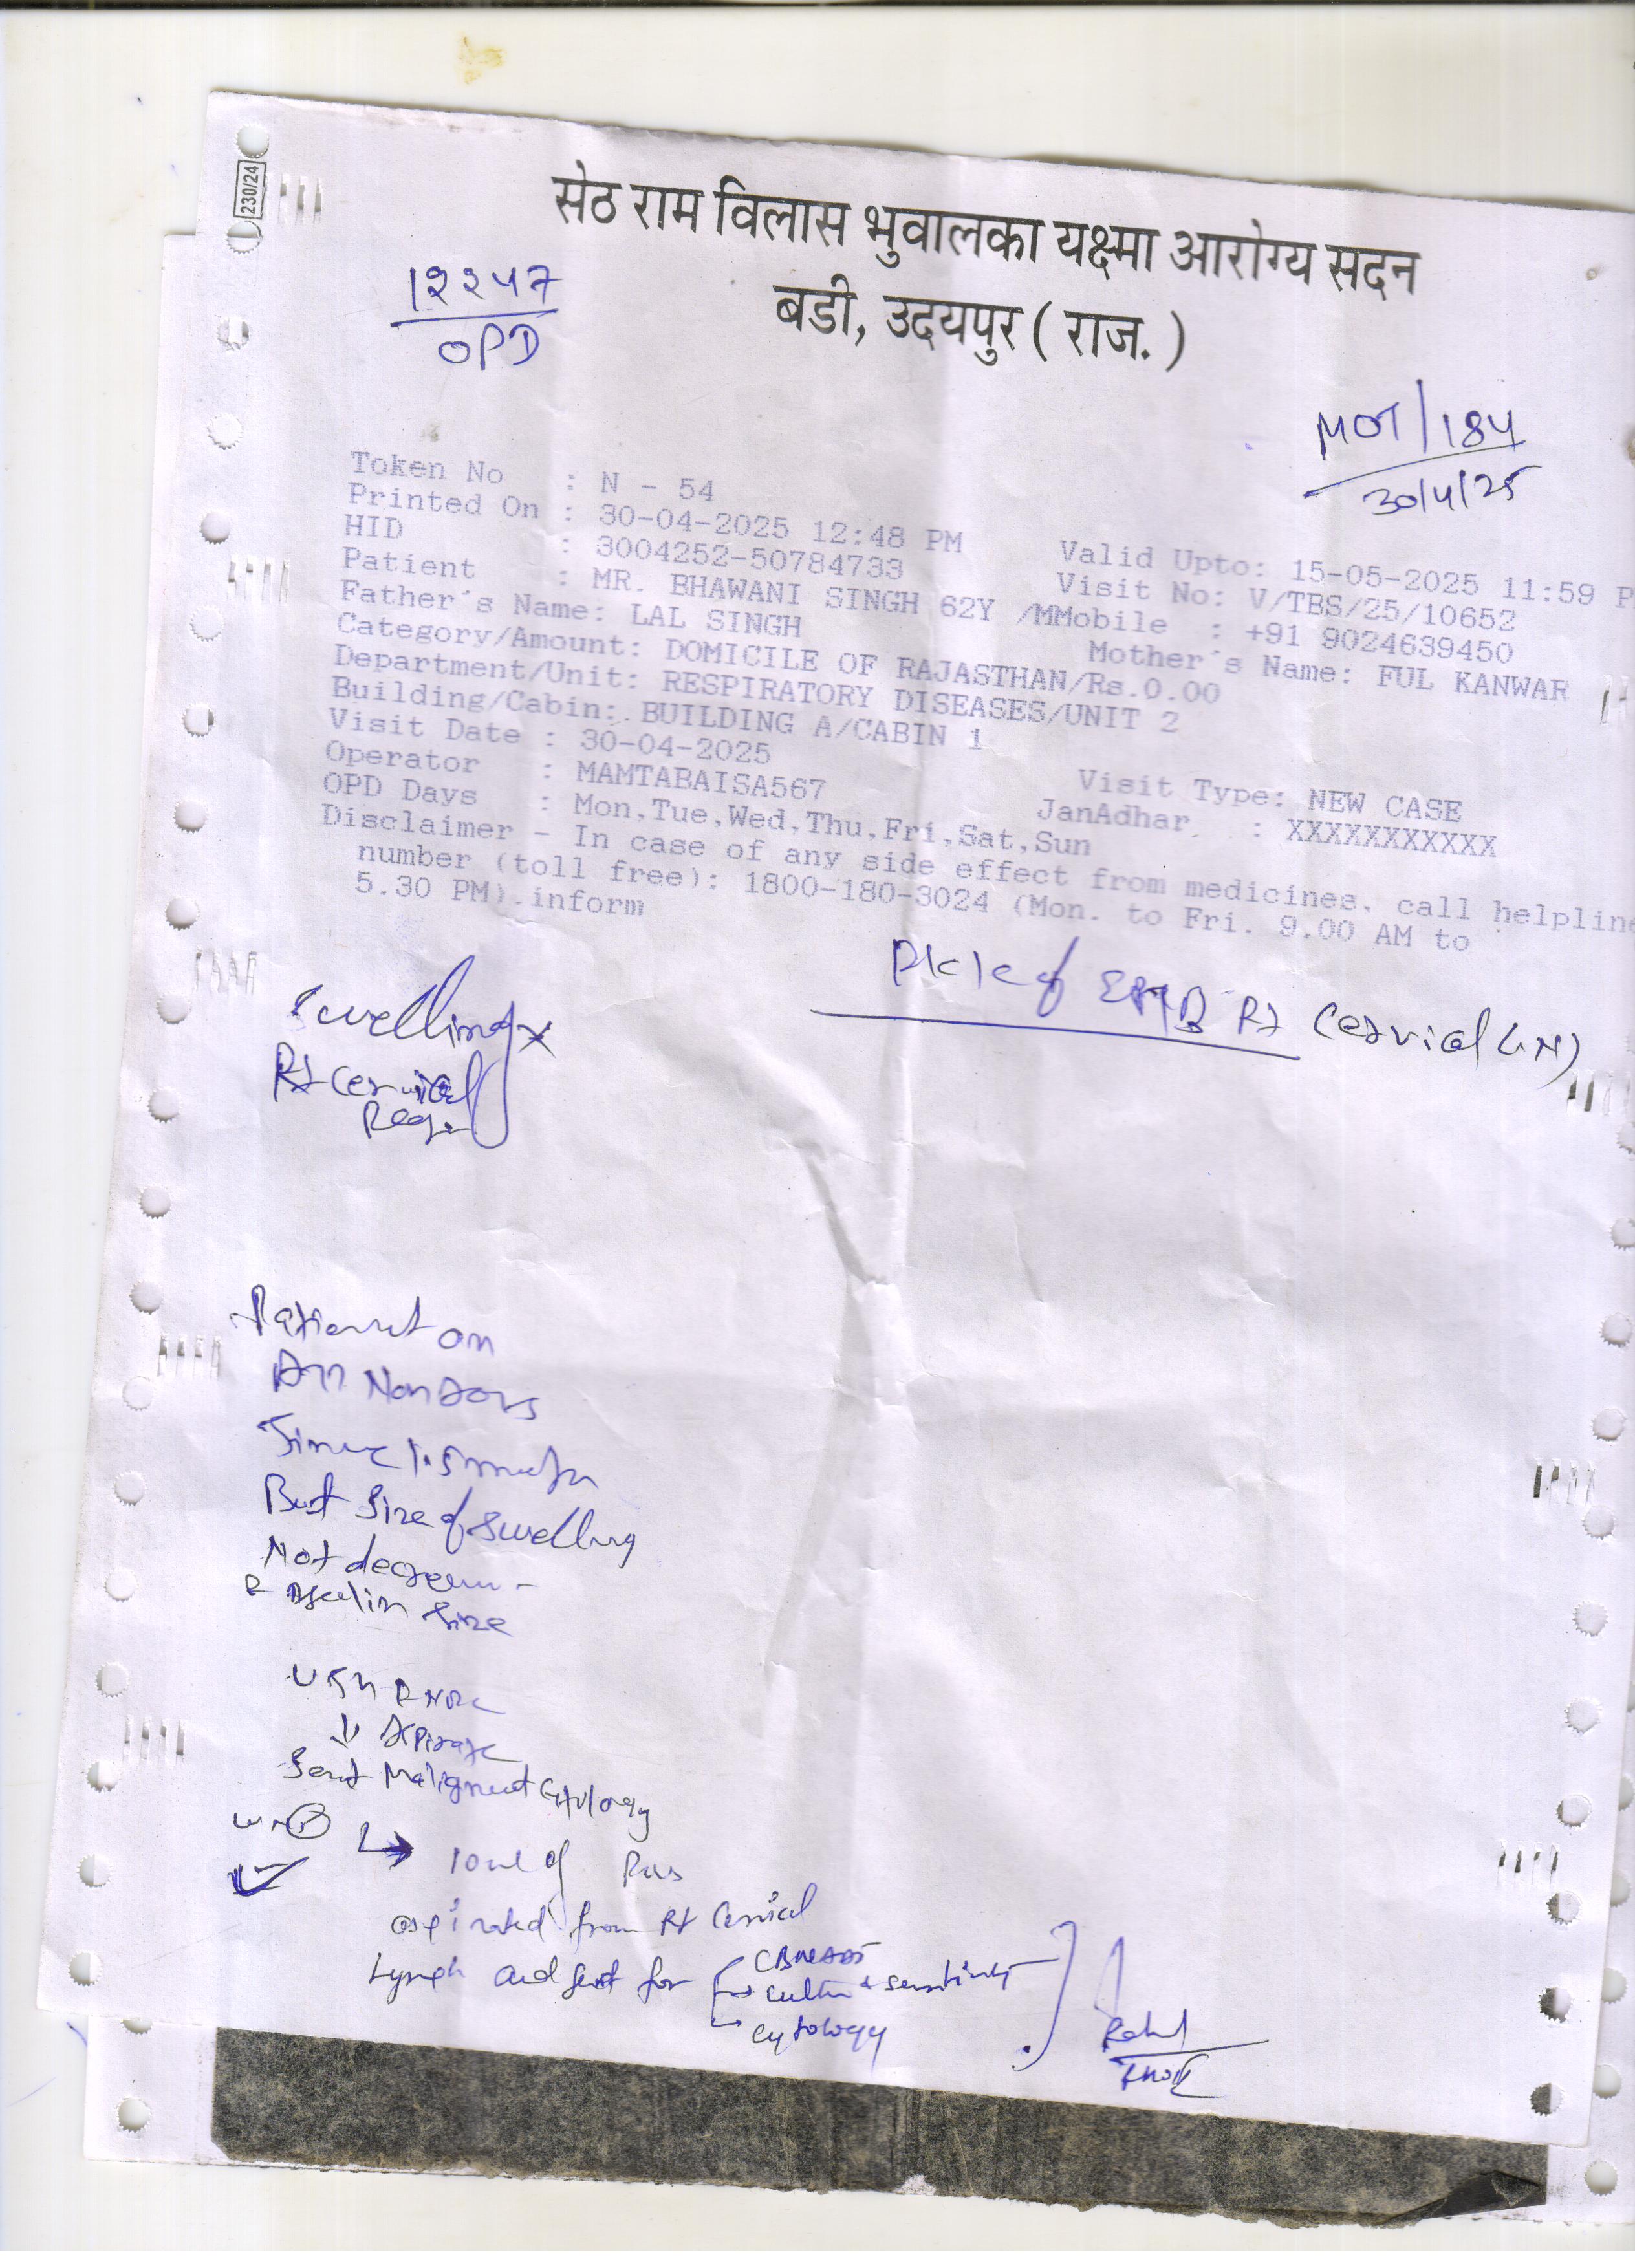 230/24
सेठ राम विलास भुवालका यक्ष्मा आरोग्य सदन
बडी, उदयपुर ( राज. )
१२२५७
OPD
MOT/184
30/4/25
Token No : N - 54
Printed On : 30-04-2025 12:48 PM Valid Upto: 15-05-2025 11:59 P
HID : 3004252-50784733 Visit No: V/TBS/25/10652
Patient : MR. BHAWANI SINGH 62Y /MMobile : +91 9024639450
Father's Name: LAL SINGH Mother's Name: FUL KANWAR
Category/Amount: DOMICILE OF RAJASTHAN/Rs.0.00
Department/Unit: RESPIRATORY DISEASES/UNIT 2
Building/Cabin: BUILDING A/CABIN 1
Visit Date : 30-04-2025 Visit Type: NEW CASE
Operator : MAMTABAISA567 JanAdhar : XXXXXXXXXXX
OPD Days : Mon,Tue,Wed,Thu,Fri,Sat,Sun
Disclaimer - In case of any side effect from medicines, call helpline
number (toll free): 1800-180-3024 (Mon. to Fri. 9.00 AM to
5.30 PM).inform
of EPTB Rt Cervical LN)
Swelling
Rt Cervical
Patient on
Since 1.5
But Size of swelling
Not
size
Aspirate
Sent Malignant Cytology
10 ml of Pus
aspirated from Rt Cervical
Lymph and sent for CBNAAT
culture + sensitivity
cytology